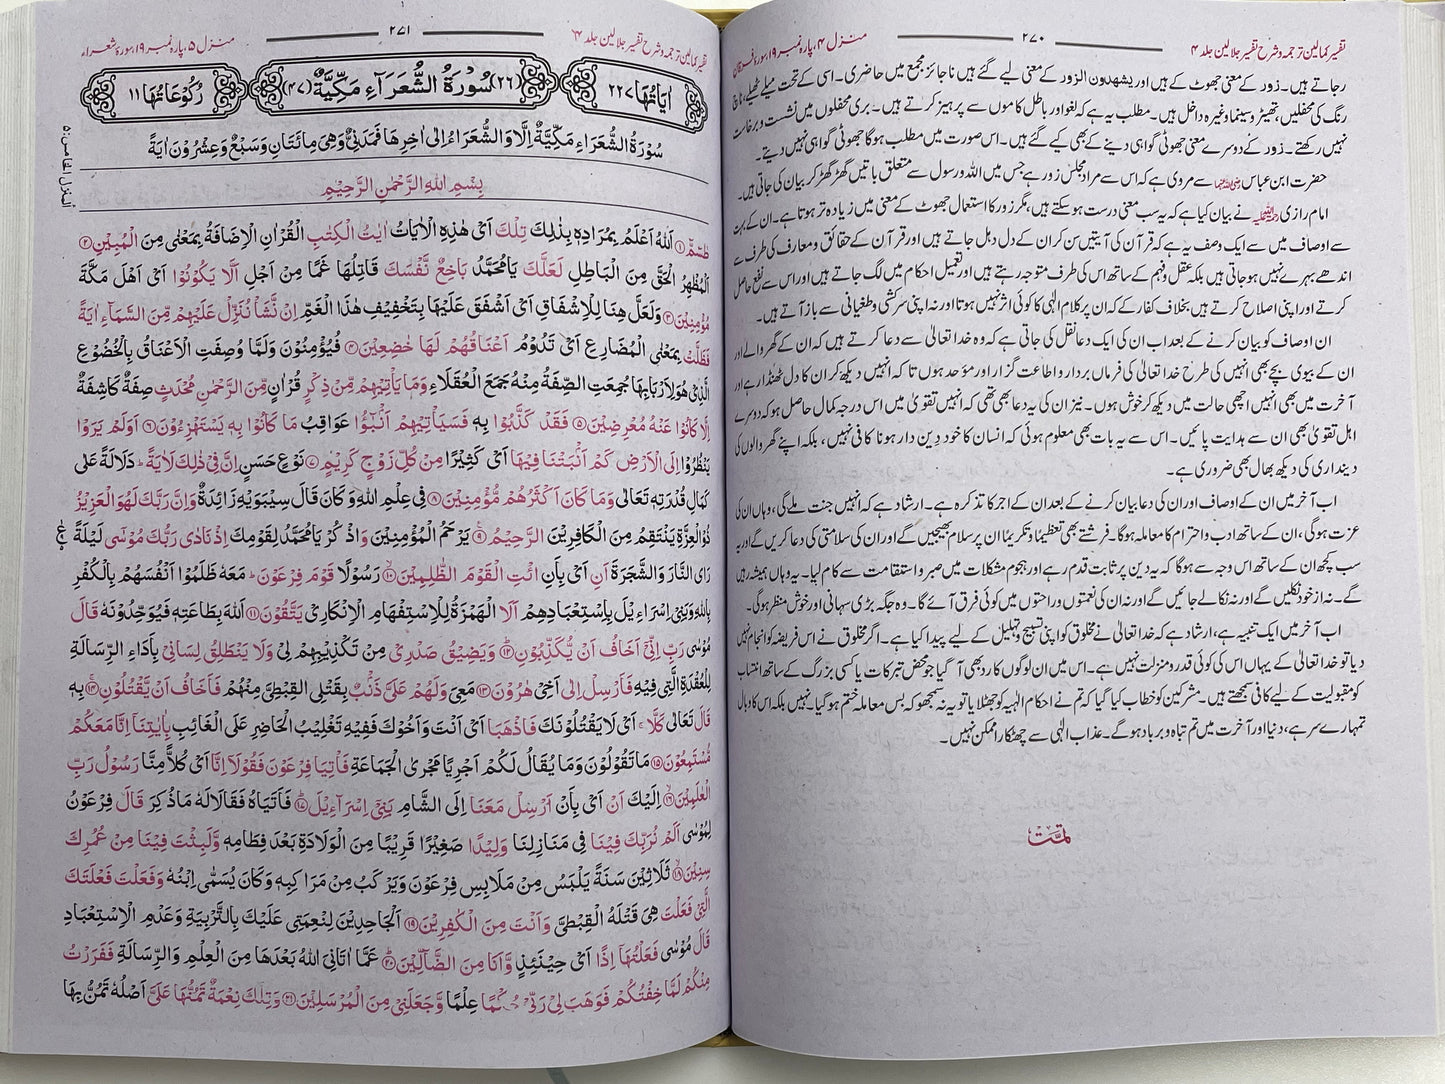 تفسیر کمالین ترجمہ و شرح تفسیر جلالین جلد ۴
۲۷۰
منزل ۴، پارہ نمبر ۱۹، سورۃ فرقان
رجاتے ہیں۔ زور کے معنی جھوٹ کے ہیں اور یشھدون الزور کے معنی لیے گئے ہیں ناجائز مجمع میں حاضری۔ اسی کے تحت میلے ٹھیلے، ناچ
رنگ کی محفلیں، تھیٹر و سینما وغیرہ داخل ہیں۔ مطلب یہ ہے کہ لغو اور باطل کاموں سے پرہیز کرتے ہیں۔ بری محفلوں میں نشست و برخاست
نہیں رکھتے۔ زور کے دوسرے معنی جھوٹی گواہی دینے کے بھی کیے گئے ہیں۔ اس صورت میں مطلب ہوگا جھوٹی گواہی نہیں دیتے۔
حضرت ابن عباس رضی اللہ عنہما سے مروی ہے کہ اس سے مراد مجلس زور ہے جس میں اللہ و رسول سے متعلق باتیں گھڑ گھڑ کر بیان کی جاتی ہیں۔
امام رازی رحمۃ اللہ علیہ نے بیان کیا ہے کہ یہ سب معنی درست ہو سکتے ہیں، مگر زور کا استعمال جھوٹ کے معنی میں زیادہ تر ہوتا ہے۔ ان کے بہت
سے اوصاف میں سے ایک وصف یہ ہے کہ قرآن کی آیتیں سن کر ان کے دل دہل جاتے ہیں اور قرآن کے حقائق و معارف کی طرف سے
اندھے بہرے نہیں ہو جاتی ہیں بلکہ عقل و فہم کے ساتھ اس کی طرف متوجہ رہتے ہیں اور تعمیل احکام میں لگ جاتے ہیں اور اس سے نفع حاصل
کرتے اور اپنی اصلاح کرتے ہیں بخلاف کفار کے کہ ان پر کلام الٰہی کا کوئی اثر نہیں ہوتا اور نہ اپنی سرکشی و طغیانی سے باز آتے ہیں۔
ان اوصاف کو بیان کرنے کے بعد اب ان کی ایک دعا نقل کی جاتی ہے کہ وہ خدا تعالیٰ سے دعا کرتے ہیں کہ ان کے گھر والے اور
ان کے بیوی بچے بھی انہیں کی طرح خدا تعالیٰ کی فرماں بردار و اطاعت گزار اور مؤحد ہوں تا کہ انہیں دیکھ کر ان کا دل ٹھنڈا رہے اور
آخرت میں بھی انہیں اچھی حالت میں دیکھ کر خوش ہوں۔ نیز ان کی یہ دعا بھی تھی کہ انہیں تقویٰ میں اس درجہ کمال حاصل ہو کہ دوسرے
اہل تقویٰ بھی ان سے ہدایت پائیں۔ اس سے یہ بات بھی معلوم ہوئی کہ انسان کا خود دین دار ہونا کافی نہیں، بلکہ اپنے گھر والوں کی
دینداری کی دیکھ بھال بھی ضروری ہے۔
اب آخر میں ان کے اوصاف اور ان کی دعا بیان کرنے کے بعد ان کے اجر کا تذکرہ ہے۔ ارشاد ہے کہ انہیں جنت ملے گی، وہاں ان کی
عزت ہو گی، ان کے ساتھ ادب و احترام کا معاملہ ہوگا۔ فرشتے بھی تعظیماً و تکریماً ان پر سلام بھیجیں گے اور ان کی سلامتی کی دعا کریں گے اور یہ
سب کچھ ان کے ساتھ اس وجہ سے ہوگا کہ یہ دین پر ثابت قدم رہے اور ہجوم مشکلات میں صبر و استقامت سے کام لیا۔ یہ وہاں ہمیشہ رہیں
گے۔ نہ از خود نکلیں گے اور نہ نکالے جائیں گے اور نہ ان کی نعمتوں و راحتوں میں کوئی فرق آئے گا۔ وہ جگہ بڑی سہانی اور خوش منظر ہوگی۔
اب آخر میں ایک تنبیہ ہے، ارشاد ہے کہ خدا تعالیٰ نے مخلوق کو اپنی تسبیح و تہلیل کے لیے پیدا کیا ہے۔ اگر مخلوق نے اس فریضہ کو انجام نہیں
دیا تو خدا تعالیٰ کے یہاں اس کی کوئی قدر و منزلت نہیں ہے۔ اس میں ان لوگوں کا رد بھی آ گیا جو محض تبرکات یا کسی بزرگ کے ساتھ انتساب
کو مقبولیت کے لیے کافی سمجھتے ہیں۔ مشرکین کو خطاب کیا گیا کہ تم نے احکام الٰہیہ کو جھٹلایا تو یہ نہ سمجھو کہ بس معاملہ ختم ہو گیا۔ نہیں بلکہ اس کا وبال
تمہارے سر ہے، دنیا اور آخرت میں تم تباہ و برباد ہو گے۔ عذاب الٰہی سے چھٹکارا ممکن نہیں۔
تمت
تفسیر کمالین ترجمہ و شرح تفسیر جلالین جلد ۴
۲۷۱
منزل ۵، پارہ نمبر ۱۹، سورۃ شعراء
اٰيَاتُهَا ۲۲۷
(۲۶) سُوْرَةُ الشُّعَرَآءِ مَكِّيَّةٌ (۴۷)
رُكُوْعَاتُهَا ۱۱
سُوْرَةُ الشُّعَرَاءِ مَكِّيَّةٌ اِلَّا وَالشُّعَرَاءُ اِلٰى اٰخِرِهَا فَمَدَنِيٌّ وَهِيَ مِائَتَانِ وَسَبْعٌ وَعِشْرُوْنَ اٰيَةً
بِسْمِ اللّٰهِ الرَّحْمٰنِ الرَّحِيْمِ
المنزل الخامس: ۵
طٰسٓمّٓ ﴿۱﴾ اَللّٰهُ اَعْلَمُ بِمُرَادِهٖ بِذٰلِكَ تِلْكَ اَىْ هٰذِهِ الْاٰيَاتُ اٰيٰتُ الْكِتٰبِ الْقُرْاٰنِ الْاِضَافَةُ بِمَعْنٰى مِنَ الْمُبِيْنِ ﴿۲﴾
الْمُظْهِرُ الْحَقَّ مِنَ الْبَاطِلِ لَعَلَّكَ يَا مُحَمَّدُ بَاخِعٌ نَّفْسَكَ قَاتِلُهَا غَمًّا مِنْ اَجْلِ اَلَّا يَكُوْنُوْا اَىْ اَهْلَ مَكَّةَ
مُؤْمِنِيْنَ ﴿۳﴾ وَلَعَلَّ هِنَا لِلْاِشْفَاقِ اَىْ اَشْفِقْ عَلَيْهَا بِتَخْفِيْفِ هٰذَا الْغَمِّ اِنْ نَّشَاْ نُنَزِّلْ عَلَيْهِمْ مِّنَ السَّمَآءِ اٰيَةً
فَظَلَّتْ بِمَعْنَى الْمُضَارِعِ اَىْ تَدُوْمُ اَعْنَاقُهُمْ لَهَا خٰضِعِيْنَ ﴿۴﴾ فَيُؤْمِنُوْنَ وَلَمَّا وُصِفَتِ الْاَعْنَاقُ بِالْخُضُوْعِ
الَّذِىْ هُوَ لِاَرْبَابِهَا جُمِعَتِ الصِّفَةُ مِنْهُ جَمْعَ الْعُقَلَاءِ وَمَا يَاْتِيْهِمْ مِّنْ ذِكْرٍ قُرْاٰنٍ مِّنَ الرَّحْمٰنِ مُحْدَثٍ صِفَةٌ كَاشِفَةٌ
اِلَّا كَانُوْا عَنْهُ مُعْرِضِيْنَ ﴿۵﴾ فَقَدْ كَذَّبُوْا بِهٖ فَسَيَاْتِيْهِمْ اَنْۢبٰٓؤُا عَوَاقِبُ مَا كَانُوْا بِهٖ يَسْتَهْزِءُوْنَ ﴿۶﴾ اَوَلَمْ يَرَوْا
يَنْظُرُوْا اِلَى الْاَرْضِ كَمْ اَنْۢبَتْنَا فِيْهَا اَىْ كَثِيْرًا مِنْ كُلِّ زَوْجٍ كَرِيْمٍ ﴿۷﴾ نَوْعٍ حَسَنٍ اِنَّ فِىْ ذٰلِكَ لَاٰيَةً ؕ دَلَالَةً عَلٰى
كَمَالِ قُدْرَتِهٖ تَعَالٰى وَمَا كَانَ اَكْثَرُهُمْ مُّؤْمِنِيْنَ ﴿۸﴾ فِىْ عِلْمِ اللّٰهِ وَكَانَ قَالَ سِيْبَوَيْهِ زَائِدَةٌ وَاِنَّ رَبَّكَ لَهُوَ الْعَزِيْزُ
ذُو الْعِزَّةِ يَنْتَقِمُ مِنَ الْكَافِرِيْنَ الرَّحِيْمُ ﴿۹﴾ يَرْحَمُ الْمُؤْمِنِيْنَ وَاذْكُرْ يَا مُحَمَّدُ لِقَوْمِكَ اِذْ نَادٰى رَبُّكَ مُوْسٰٓى لَيْلَةً
رَاى النَّارَ وَالشَّجَرَةَ اَنِ اَىْ بِاَنِ ائْتِ الْقَوْمَ الظّٰلِمِيْنَ ﴿۱۰﴾ رَسُوْلًا قَوْمَ فِرْعَوْنَ ؕ مَعَهٗ ظَلَمُوْا اَنْفُسَهُمْ بِالْكُفْرِ
بِاللّٰهِ وَبَنِىْ اِسْرَاءِيْلَ بِاِسْتِعْبَادِهِمْ اَلَا الْهَمْزَةُ لِلْاِسْتِفْهَامِ الْاِنْكَارِىْ يَتَّقُوْنَ ﴿۱۱﴾ اللّٰهَ بِطَاعَتِهٖ فَيُوَحِّدُوْنَهٗ قَالَ
مُوْسٰى رَبِّ اِنِّىْٓ اَخَافُ اَنْ يُّكَذِّبُوْنِ ﴿۱۲﴾ وَيَضِيْقُ صَدْرِىْ مِنْ تَكْذِيْبِهِمْ لِىْ وَلَا يَنْطَلِقُ لِسَانِىْ بِاَدَاءِ الرِّسَالَةِ
لِلْعُقْدَةِ الَّتِىْ فِيْهِ فَاَرْسِلْ اِلٰى اَخِىْ هٰرُوْنَ ﴿۱۳﴾ مَعِىَ وَلَهُمْ عَلَىَّ ذَنْۢبٌ بِقَتْلِى الْقِبْطِىَّ مِنْهُمْ فَاَخَافُ اَنْ يَّقْتُلُوْنِ ﴿۱۴﴾ بِهٖ
قَالَ تَعَالٰى كَلَّا ۚ اَىْ لَا يَقْتُلُوْنَكَ فَاذْهَبَا اَىْ اَنْتَ وَاَخُوْكَ فَفِيْهِ تَغْلِيْبُ الْحَاضِرِ عَلَى الْغَائِبِ بِاٰيٰتِنَآ اِنَّا مَعَكُمْ
مُّسْتَمِعُوْنَ ﴿۱۵﴾ مَا تَقُوْلُوْنَ وَمَا يُقَالُ لَكُمْ اُجْرِيَا مُجْرَى الْجَمَاعَةِ فَاْتِيَا فِرْعَوْنَ فَقُوْلَآ اِنَّا اَىْ كُلًّا مِّنَّا رَسُوْلُ رَبِّ
الْعٰلَمِيْنَ ﴿۱۶﴾ اِلَيْكَ اَنْ اَىْ بِاَنْ اَرْسِلْ مَعَنَا اِلَى الشَّامِ بَنِىْٓ اِسْرَآءِيْلَ ﴿۱۷﴾ فَاَتَيَاهُ فَقَالَا لَهٗ مَا ذُكِرَ قَالَ فِرْعَوْنُ
لِمُوْسٰى اَلَمْ نُرَبِّكَ فِيْنَا فِىْ مَنَازِلِنَا وَلِيْدًا صَغِيْرًا قَرِيْبًا مِنَ الْوِلَادَةِ بَعْدَ فِطَامِهٖ وَّلَبِثْتَ فِيْنَا مِنْ عُمُرِكَ
سِنِيْنَ ﴿۱۸﴾ ثَلَاثِيْنَ سَنَةً يَلْبَسُ مِنْ مَلَابِسِ فِرْعَوْنَ وَيَرْكَبُ مِنْ مَرَاكِبِهٖ وَكَانَ يُسَمّٰى اِبْنُهٗ وَفَعَلْتَ فَعْلَتَكَ
الَّتِىْ فَعَلْتَ هِىَ قَتْلُهُ الْقِبْطِىَّ وَاَنْتَ مِنَ الْكٰفِرِيْنَ ﴿۱۹﴾ اَلْجَاحِدِيْنَ لِنِعْمَتِىْ عَلَيْكَ بِالتَّرْبِيَةِ وَعَدَمِ الْاِسْتِعْبَادِ
قَالَ مُوْسٰى فَعَلْتُهَآ اِذًا اَىْ حِيْنَئِذٍ وَّاَنَا مِنَ الضَّآلِّيْنَ ﴿۲۰﴾ عَمَّا اٰتَانِىَ اللّٰهُ بَعْدَهَا مِنَ الْعِلْمِ وَالرِّسَالَةِ فَفَرَرْتُ
مِنْكُمْ لَمَّا خِفْتُكُمْ فَوَهَبَ لِىْ رَبِّىْ حُكْمًا عِلْمًا وَّجَعَلَنِىْ مِنَ الْمُرْسَلِيْنَ ﴿۲۱﴾ وَتِلْكَ نِعْمَةٌ تَمُنُّهَا عَلَىَّ اَصْلُهٗ تَمُنُّ بِهَا